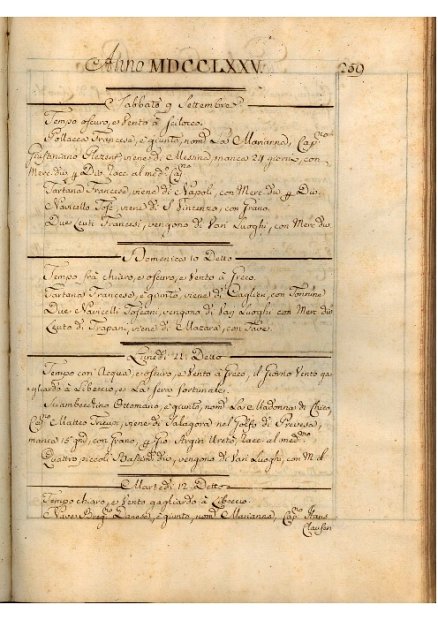 Anno MDCCLXXV. 259
Sabbato 9 Settembre
Tempo oscuro, e Vento à Scilocco.
Pollacca Francese, è giunta, nom.ta La Marianna, Cap.no
Giustiniano, viene di Messina, manca 24 giorni, con
Merc. dio, p Div. racc. al med. Cap.no
Tartana Francese, viene di Napoli, con Merc. dio, p Div.
Navicello Tosc. viene di S. Vincenzo, con Grano.
Due Leuti Francesi, vengono di Vari Luoghi, con Merc. dio.
Domenica 10 Detto
Tempo frà chiaro, e oscuro, e Vento à Greco.
Tartana Francese, è giunta, viene di Caglieri, con Tonnine
Due Navicelli Toscani, vengono di Vari Luoghi con Merc. dio
Leuto di Trapani, viene di Mazara, con Fave.
Lunedì 11 Detto
Tempo con Acqua, e oscuro, e Vento à Greco, il Giorno Vento ga
gliardo à Libeccio, e La sera fortunale.
Ottomano, è giunto, nom.to La Madonna di
Cap.no Matteo, viene di Salagora nel Golfo di Prevesa,
manca 15 gni, con Grano, p Gio. racc. al med.mo
Quattro piccoli Bastim. dio, vengono di Vari Luoghi, con M. d.
Martedì 12 Detto
Tempo chiaro, e Vento gagliardo à Libeccio.
Nave Danese, è giunta, nom.ta Marianna, Cap.no Hans
Clausen